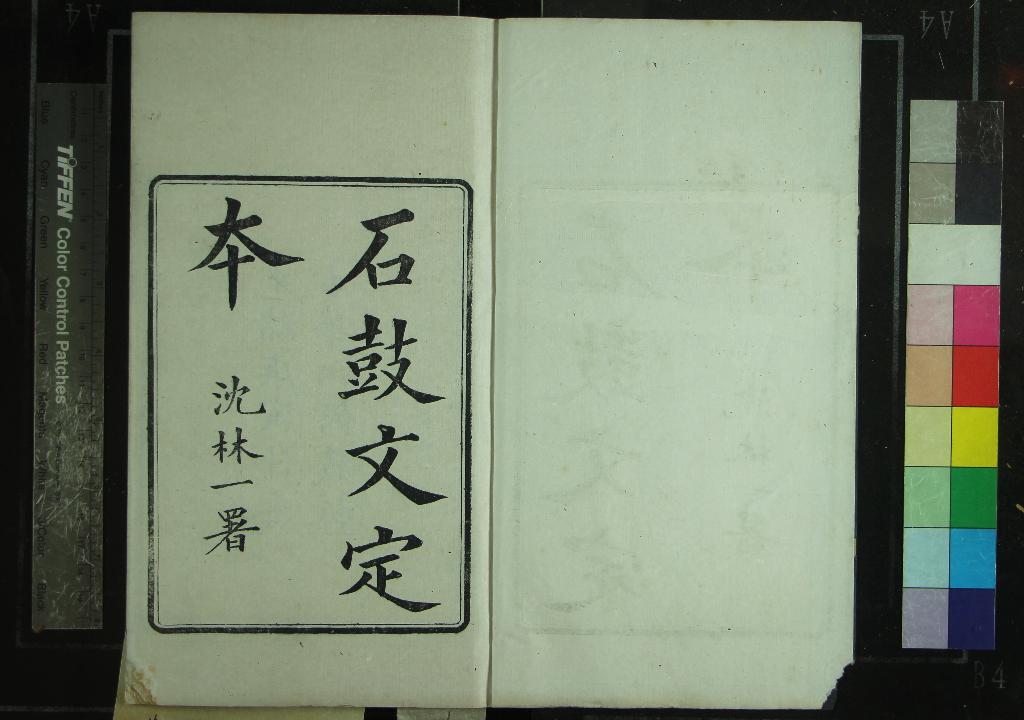 石鼓文定
本
沈林一署
TIFFEN Color Control Patches
Blue Cyan Green Yellow Red Magenta White 3/Color Black
A4
A4
B4